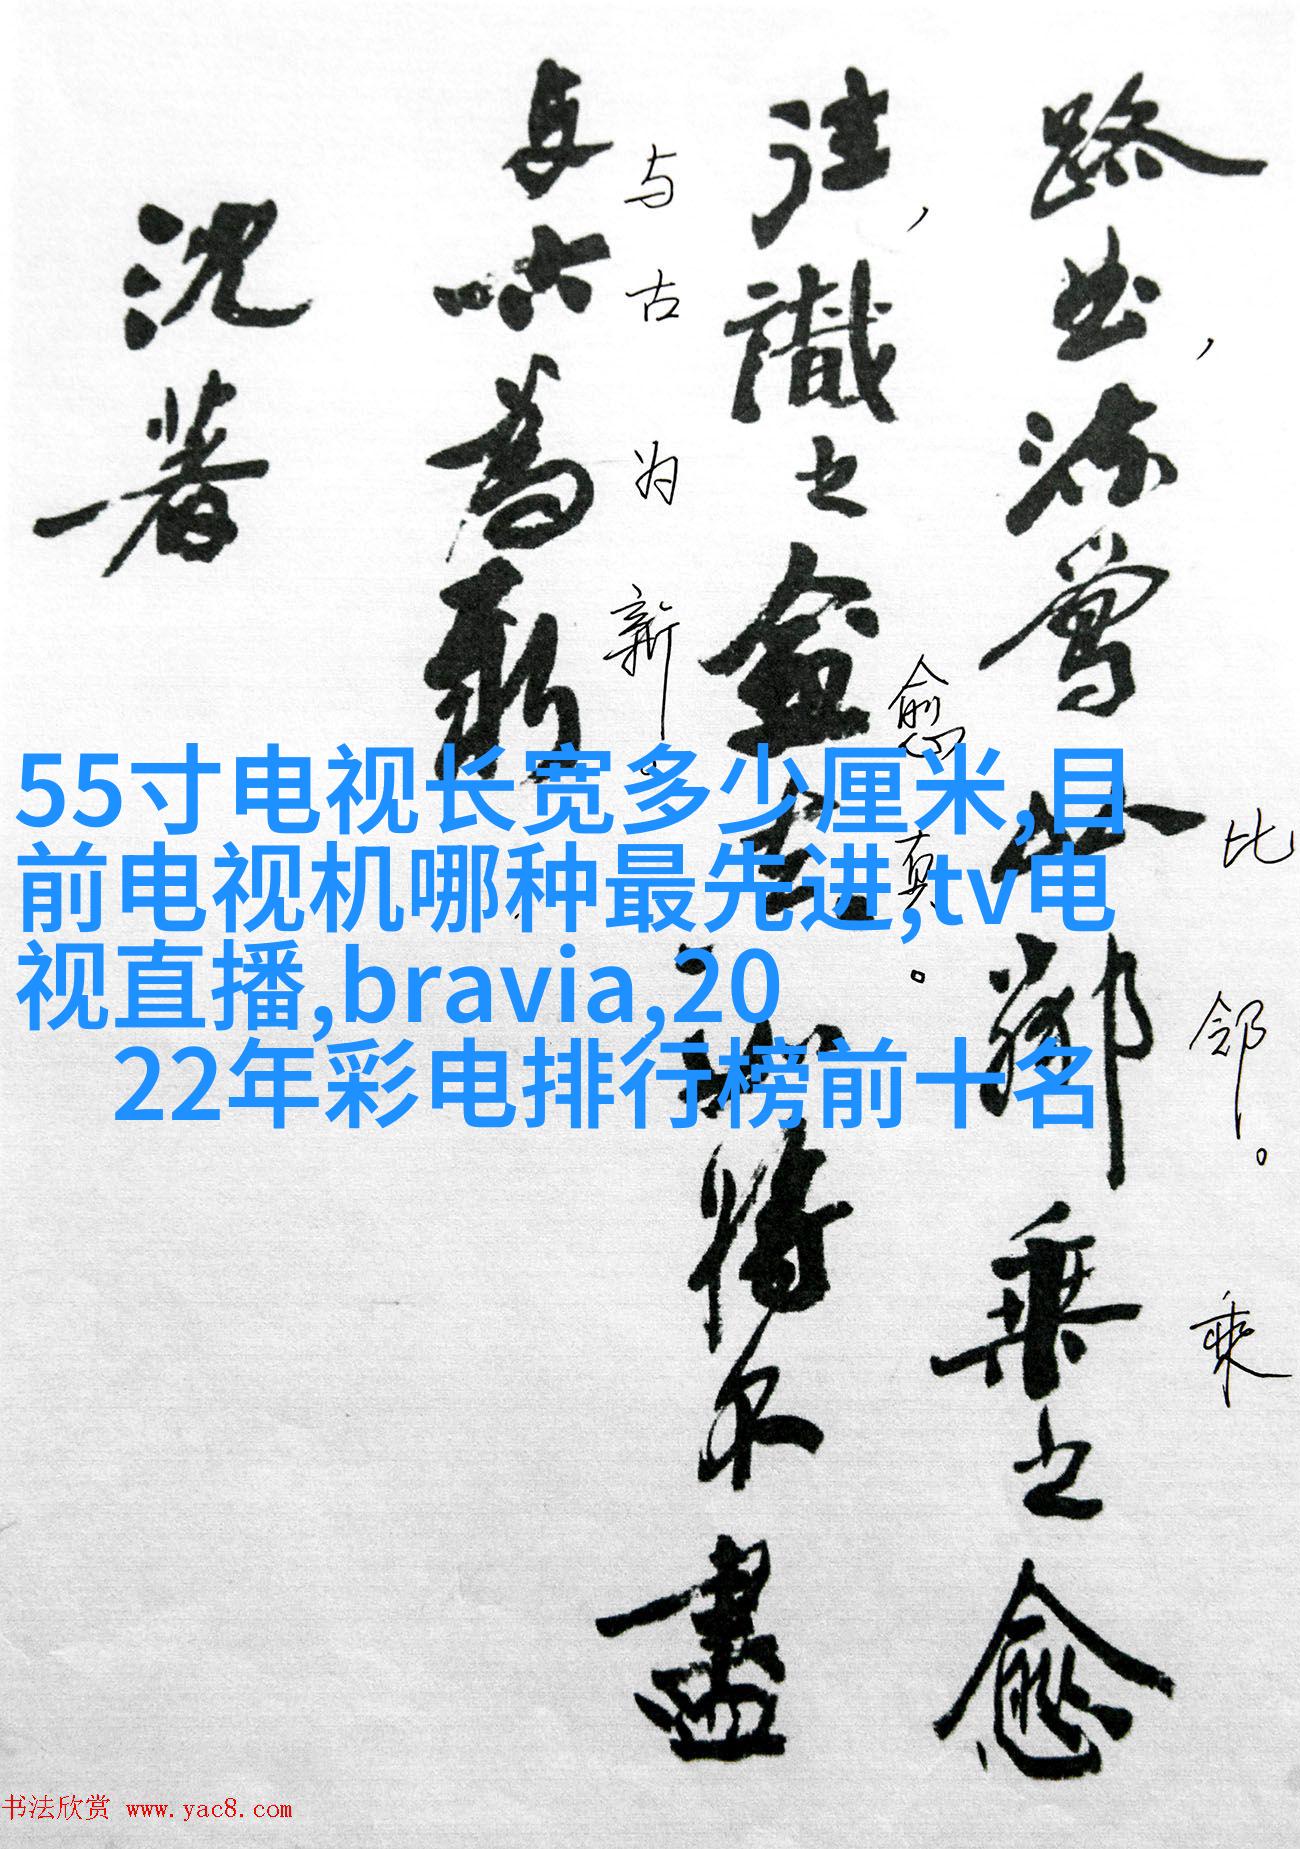 比邻。乘
路曲,流莺比鄰乘之愈
愈真。
往,識之愈真如將不盡
与古为新。
与古為新
沈著
55寸电视长宽多少厘米,目
前电视机哪种最先进,tv电
视直播,bravia,20
22年彩电排行榜前十名
书法欣赏 www.yac8.com